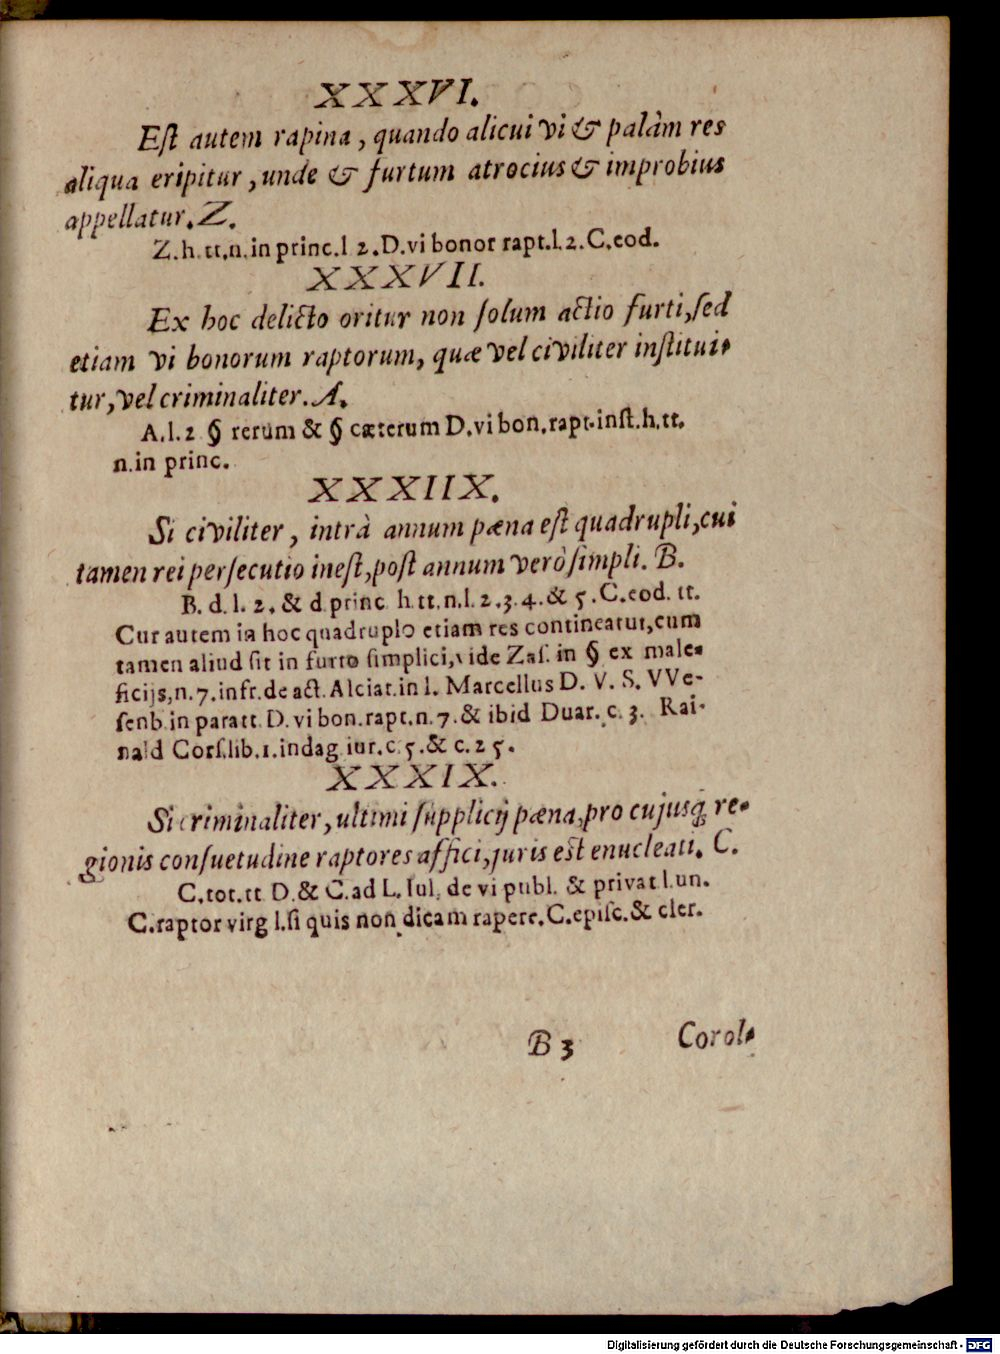 XXXVI.
Est autem rapina, quando alicui vi & palàm res
aliqua eripitur, unde & furtum atrocius & improbius
appellatur. Z.
Z. h. tt. n. in princ. l 2. D. vi bonor rapt. l. 2. C. eod.
XXXVII.
Ex hoc delicto oritur non solum actio furti, sed
etiam vi bonorum raptorum, quæ vel civiliter institui-
tur, vel criminaliter. A.
A. l. 2 § rerum & § cæterum D. vi bon. rapt. inst. h. tt.
n. in princ.
XXXIIX.
Si civiliter, intrà annum pæna est quadrupli, cui
tamen rei persecutio inest, post annum verò simpli. B.
B. d. l. 2. & d princ h. tt. n. l. 2. 3. 4. & 5. C. eod. tt.
Cur autem in hoc quadruplo etiam res contineatur, cum
tamen aliud sit in furto simplici, vide Zas. in § ex male-
ficijs, n. 7. infr. de act. Alciat. in l. Marcellus D. V. S. VVe-
senb in paratt. D. vi bon. rapt. n. 7. & ibid Duar. c. 3. Rai-
nald Cors. lib. 1. indag iur. c 5. & c. 25.
XXXIX.
Si criminaliter, ultimi supplicij pæna, pro cujusq; re-
gionis consuetudine raptores affici, juris est enucleati. C.
C. tot. tt D. & C. ad L. Iul. de vi publ. & privat l. un.
C. raptor virg l. si quis non dicam rapere. C. episc. & cler.
B 3 Corol-
Digitalisierung gefördert durch die Deutsche Forschungsgemeinschaft - DFG